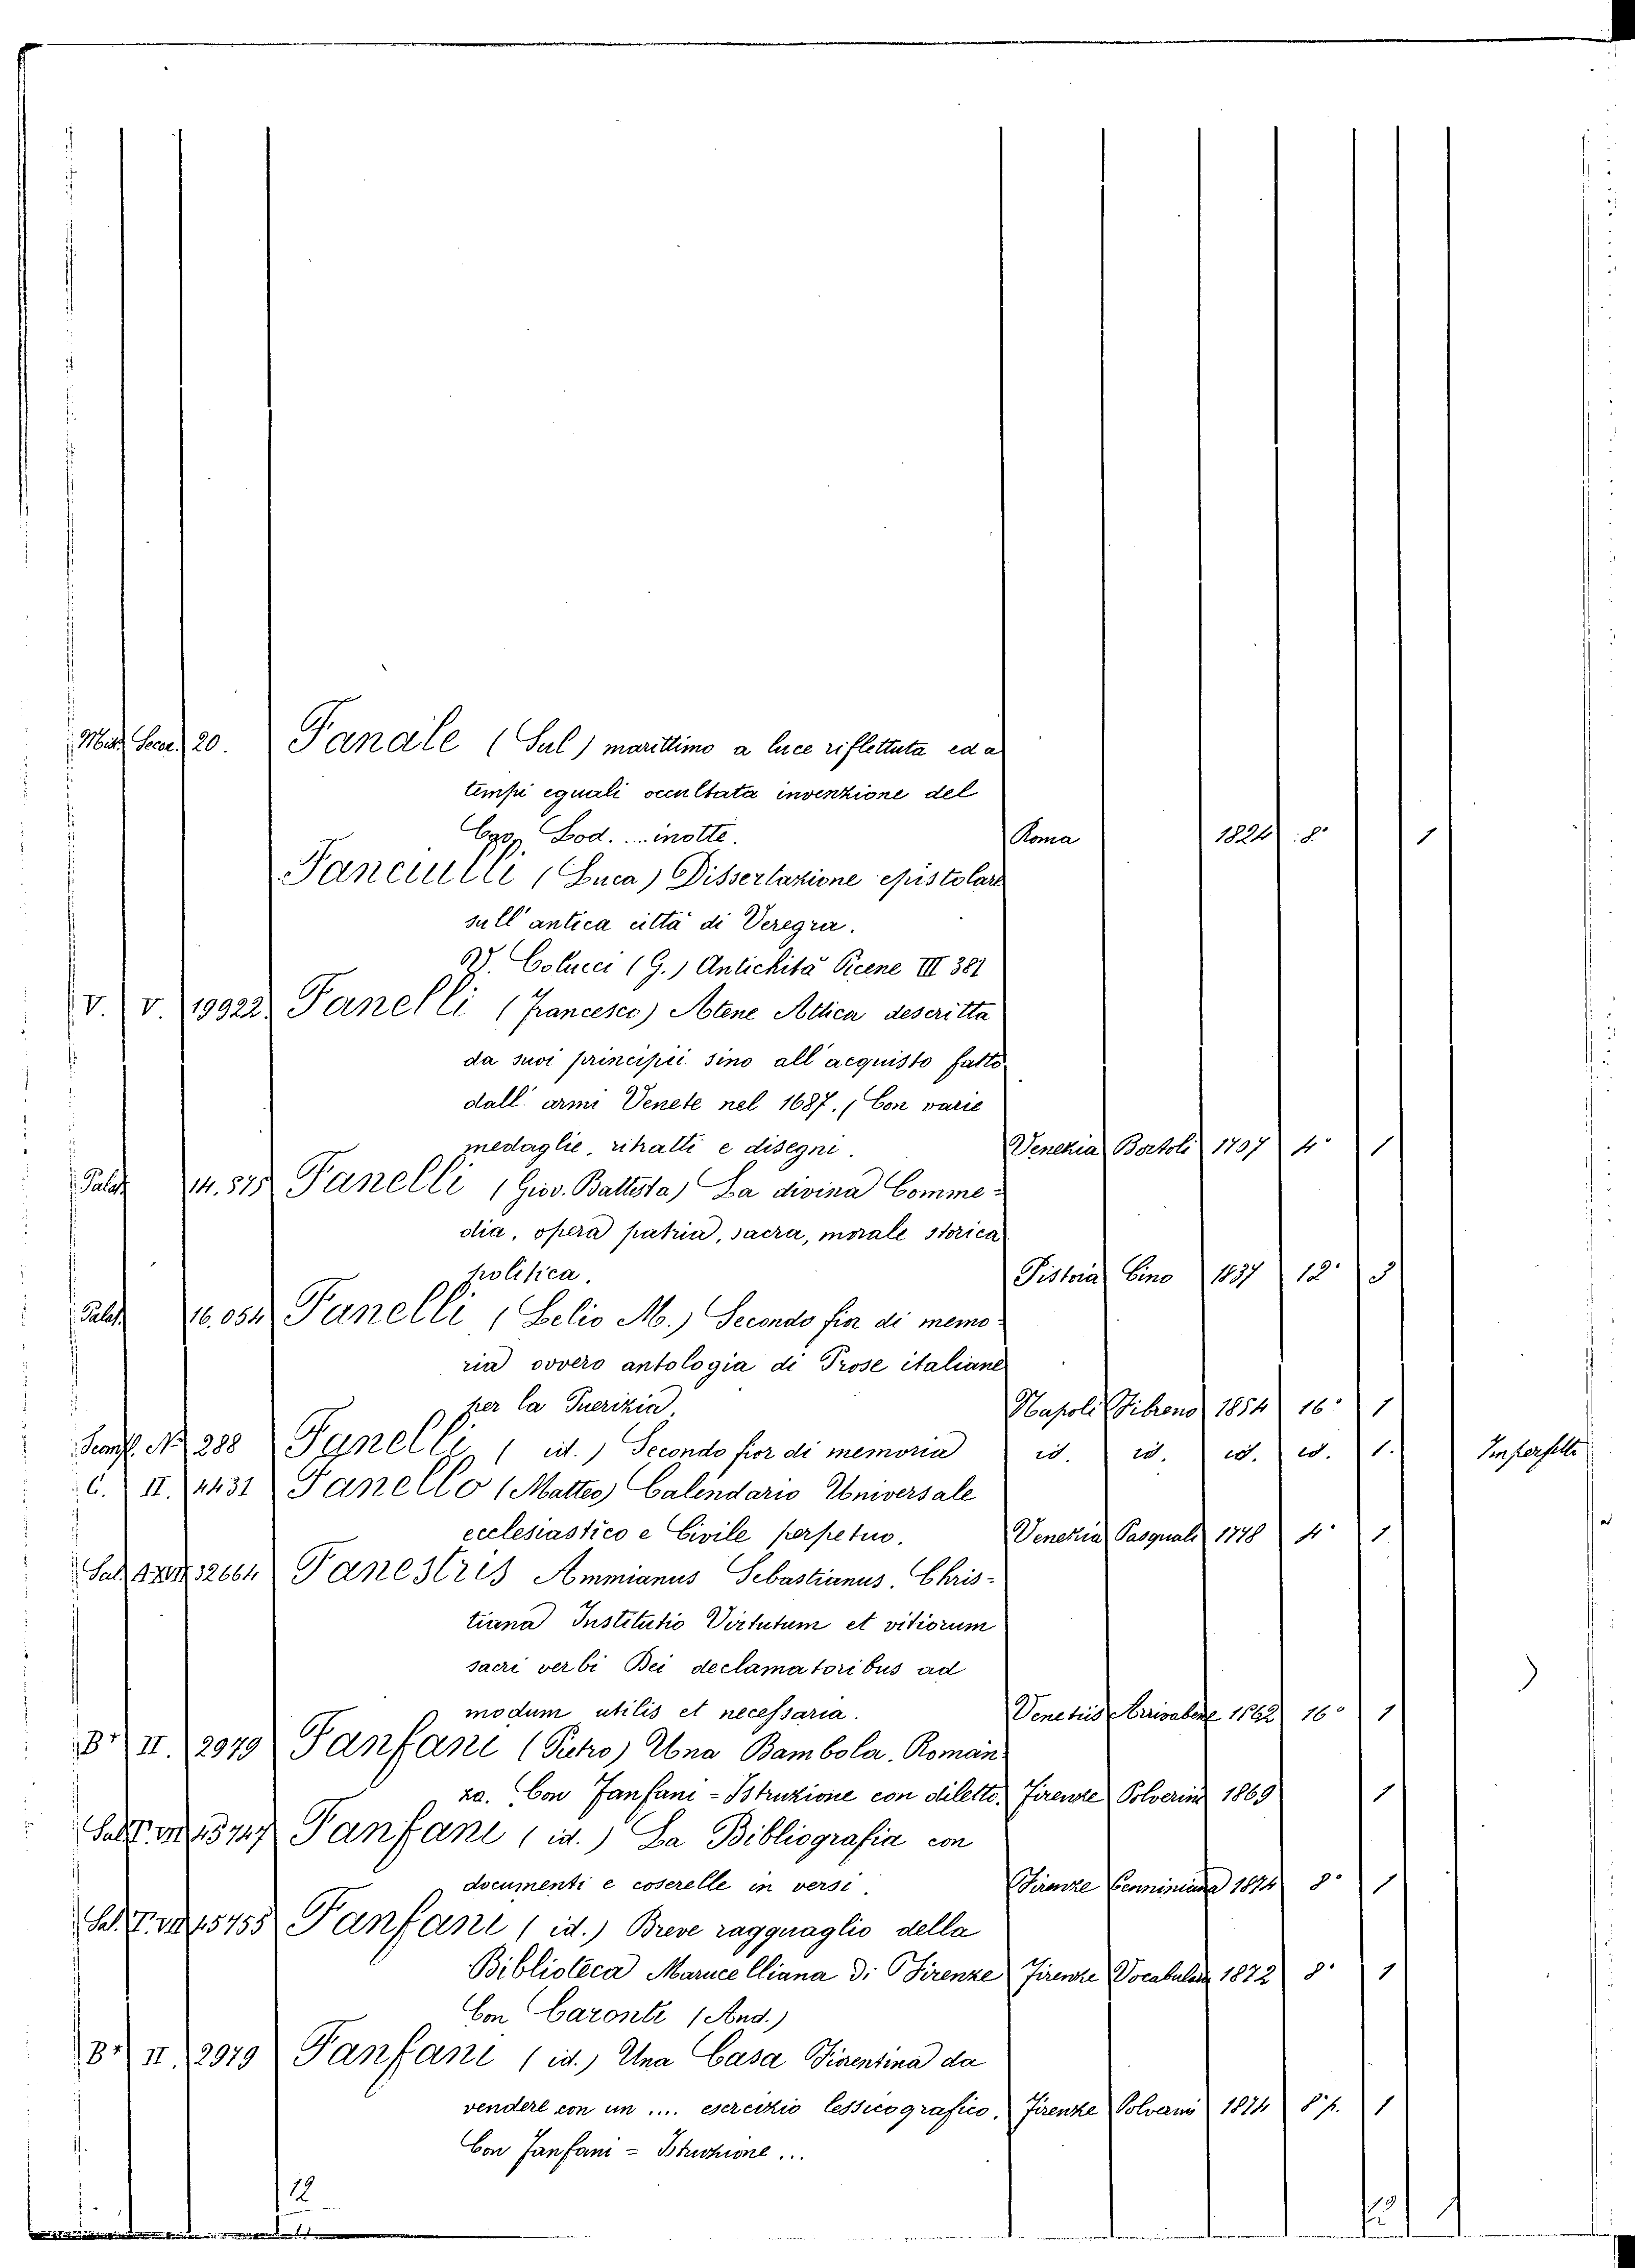 Misc. Secc. 20. Fanale (Sul) marittimo a luce riflettuta ed a
tempi eguali occultata invenzione del
Cap. Lod. .... inotte. Roma 1824 8° 1
Fanciulli (Luca) Dissertazione epistolare
sull'antica città di Veregra.
V. Colucci (G.) Antichità Picene III 381
V. V. 19922 Fanelli (Francesco) Atene Attica descritta
da suoi principii sino all'acquisto fatto
dall'armi Venete nel 1687. (Con varie
medaglie, ritratti e disegni. Venezia Bortoli 1707 4° 1
Palat. 14.575 Fanelli (Giov. Battista) La divina Comme-
dia, opera patria, sacra, morale storica
politica. Pistoia Cino 1837 12° 3
Palat. 16.054 Fanelli (Lelio M.) Secondo fior di memo-
ria ovvero antologia di Prose italiane
per la Puerizia. Napoli Fibreno 1854 16° 1
Scanf. N. 288 Fanelli (id.) Secondo fior di memoria id. id. id. id. 1. Imperfetto
C. II. 4431 Fanello (Matteo) Calendario Universale
ecclesiastico e Civile perpetuo. Venezia Pasquali 1778 4° 1
Sal. 32664 Fanestris Ammianus Sebastianus. Chris-
tiana Institutio Virtutum et vitiorum
sacri verbi Dei declamatoribus ad
modum utilis et necessaria. Venetiis Arrivabene 1562 16° 1
Br. II. 2979 Fanfani (Pietro) Una Bambola. Roman-
zo. Con Fanfani = Istruzione con diletto. Firenze Polverini 1869 1
Sal. 15747 Fanfani (id.) La Bibliografia con
documenti e coserelle in versi. Firenze Cenniniana 1874 8° 1
Sal. 15755 Fanfani (id.) Breve ragguaglio della
Biblioteca Marucelliana di Firenze Firenze Vocabolario 1872 8° 1
Con Caronti (And.)
Br. II. 2979 Fanfani (id.) Una Casa Fiorentina da
vendere con un .... esercizio lessicografico. Firenze Polverini 1874 8° p. 1
Con Fanfani = Istruzione ...
12